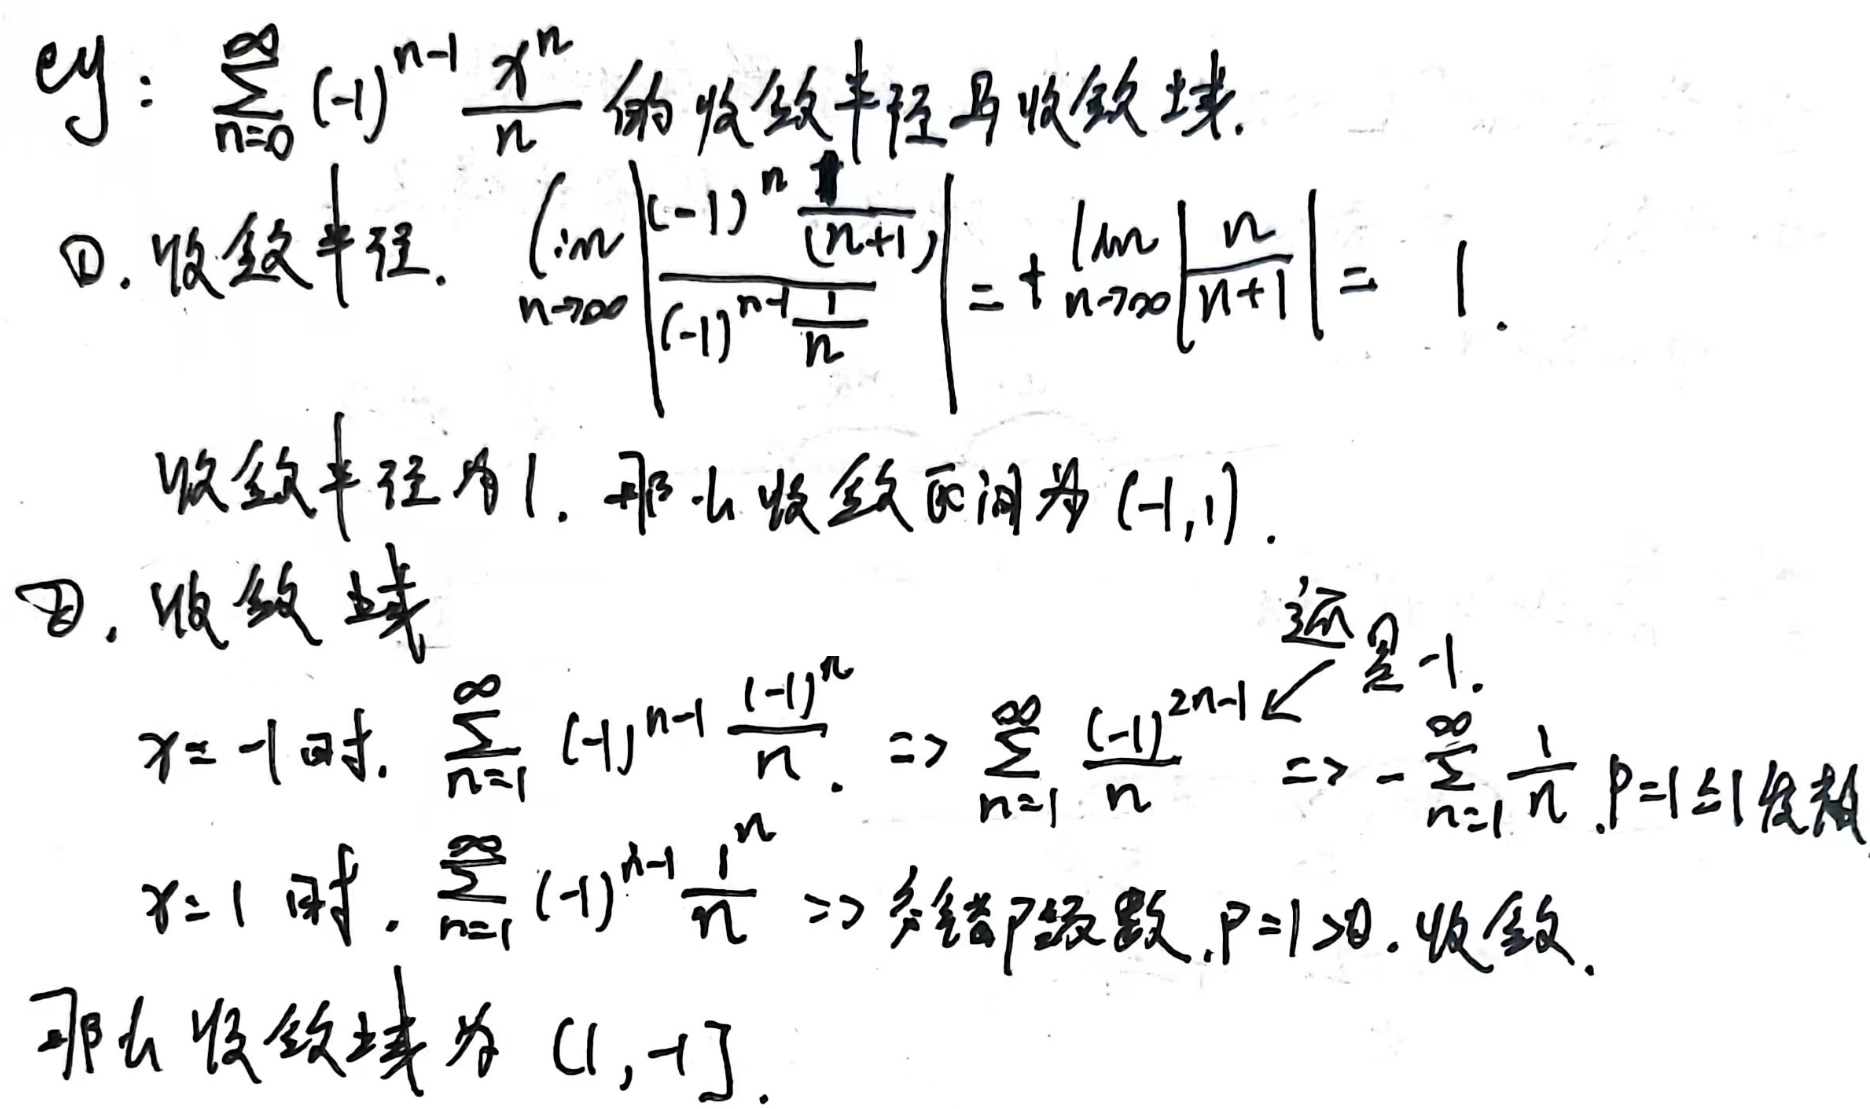 eg: $\sum_{n=0}^{\infty} (-1)^{n-1} \frac{x^n}{n}$ 的收敛半径与收敛域.
①. 收敛半径. $\lim_{n\to\infty} \left| \frac{(-1)^n \frac{1}{(n+1)}}{(-1)^{n-1} \frac{1}{n}} \right| = + \lim_{n\to\infty} \left| \frac{n}{n+1} \right| = 1.$
收敛半径为1. 那么收敛区间为 (-1,1).
②. 收敛域
这是-1.
x=-1时. $\sum_{n=1}^{\infty} (-1)^{n-1} \frac{(-1)^n}{n}. \Rightarrow \sum_{n=1}^{\infty} \frac{(-1)^{2n-1}}{n} \Rightarrow -\sum_{n=1}^{\infty} \frac{1}{n}$. P=1≤1发散
x=1时. $\sum_{n=1}^{\infty} (-1)^{n-1} \frac{1^n}{n} \Rightarrow$ 交错P级数. P=1>0. 收敛.
那么收敛域为 (1,-1].